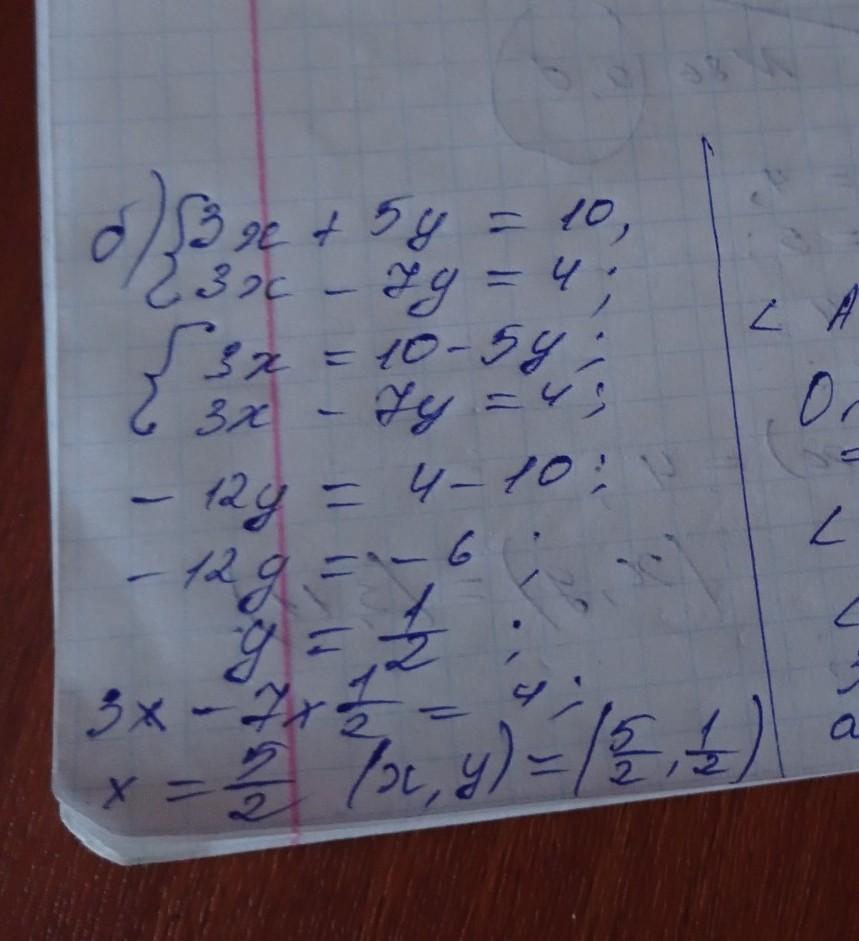 б) { 3x + 5y = 10,
3x - 7y = 4;
{ 3x = 10 - 5y;
3x - 7y = 4;
- 12y = 4 - 10;
- 12y = - 6;
y = 1/2;
3x - 7 × 1/2 = 4;
x = 5/2 (x, y) = (5/2, 1/2)
< A
<
<
a